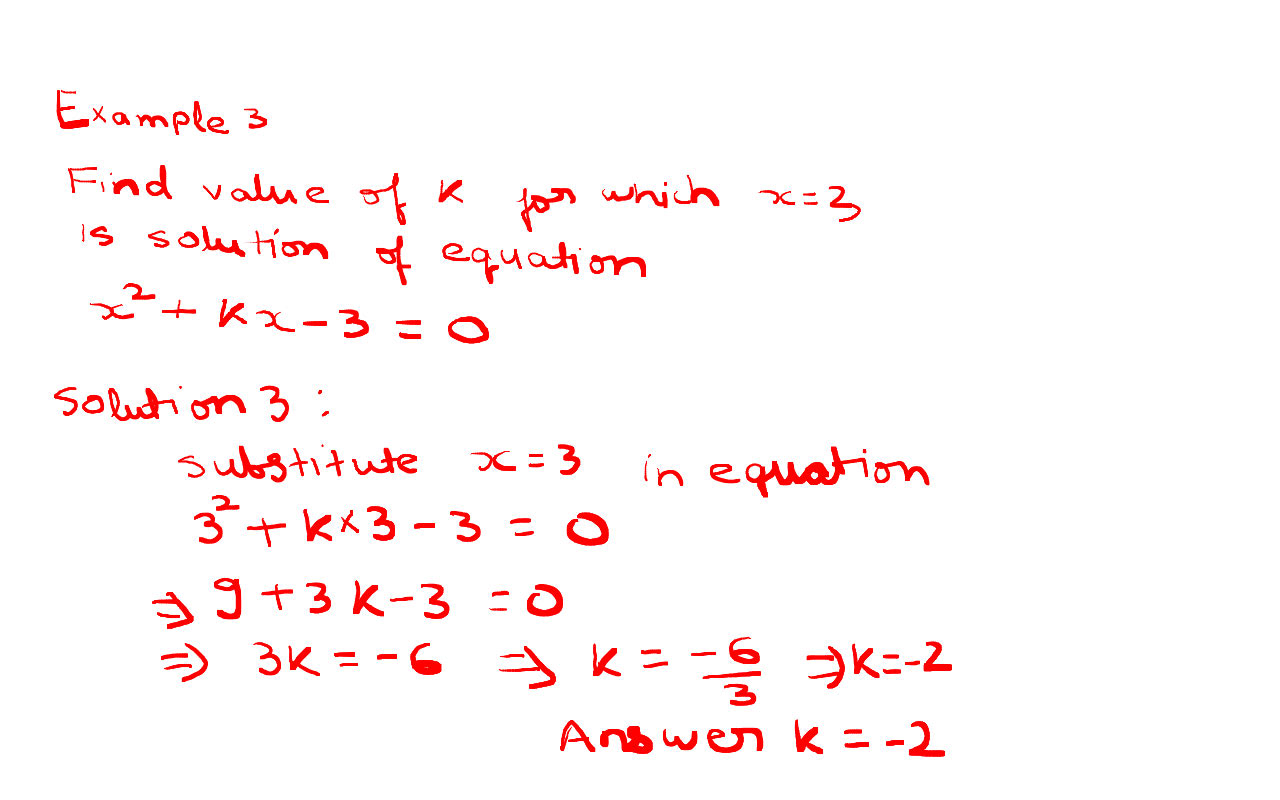 Example 3
Find value of k for which x=3
is solution of equation
x² + kx - 3 = 0
Solution 3 :
substitute x = 3 in equation
3² + k×3 - 3 = 0
⇒ 9 + 3k - 3 = 0
⇒ 3k = -6 ⇒ k = -6/3 ⇒ k = -2
Answer k = -2